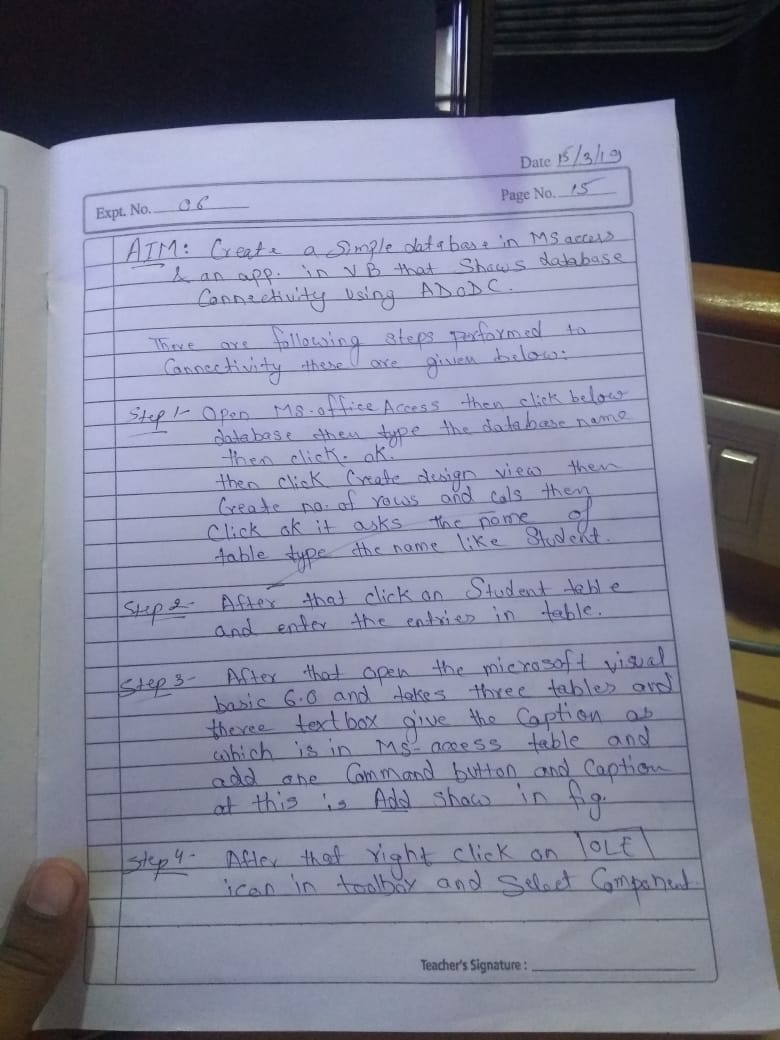 Date 15/3/19
Expt. No. 06
Page No. 15
AIM: Create a Simple database in MS access
& an app. in VB that Shows database
Connectivity using ADODC.
There are following steps performed to
Connectivity these are given below:
Step 1- Open MS-office Access then click below
database then type the database name
then click. ok.
then click Create design view then
Create no. of rows and cols then
Click ok it asks the name of
table type the name like Student.
Step 2- After that click on Student table
and enter the entries in table.
Step 3- After that open the microsoft visual
basic 6.0 and takes three tables and
theree textbox give the Caption as
which is in MS-access table and
add one Command button and Caption
at this is Add show in fig.
Step 4- After that right click on OLE
icon in toolbox and Select Component
Teacher's Signature :